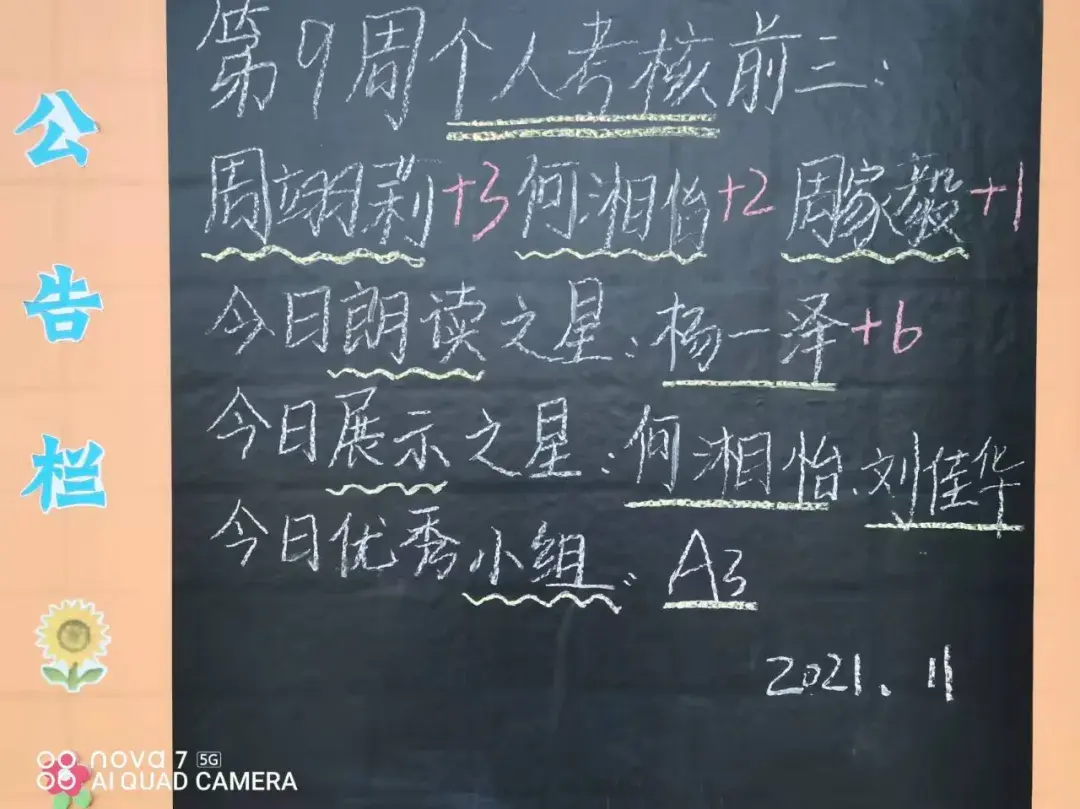 公告栏
第9周个人考核前三:
周翊莉+3 何湘怡+2 周家毅+1
今日朗读之星:杨一泽+6
今日展示之星:何湘怡、刘佳华
今日优秀小组: A3
2021、11
nova 7 5G
AI QUAD CAMERA